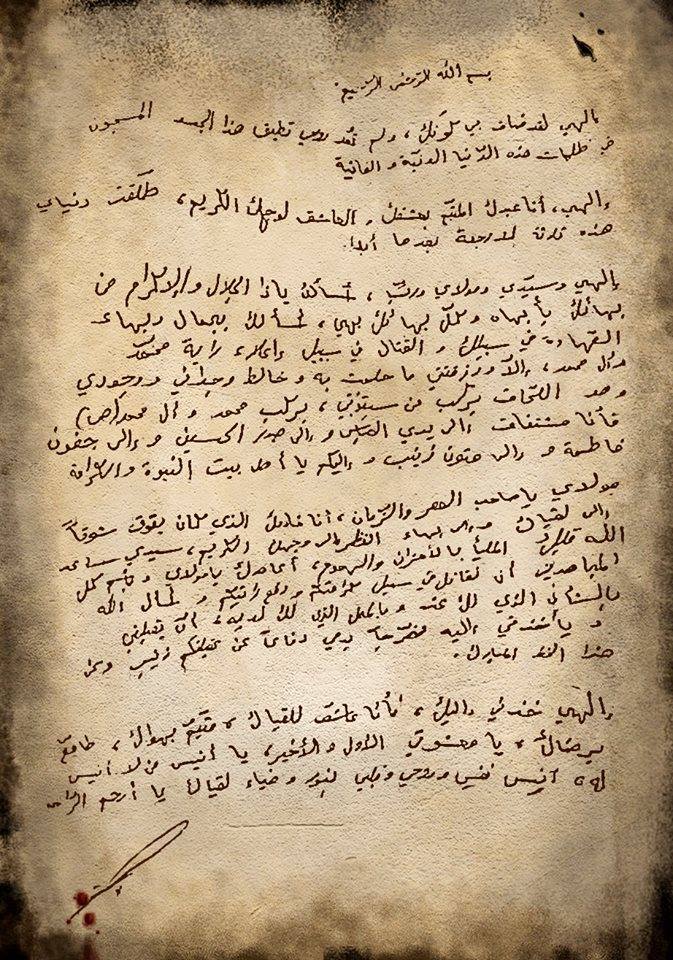 بسم الله الرحمن الرحيم
إلهي لقد ضاقت بي كونك، ولم تعد روحي تطيق هذا الجسد المسجون
في ظلمات هذه الدنيا الدنية والفانية
إلهي، أنا عبدك المتيّم بعشقك، والعاشق لوجهك الكريم، طلقت دنياي
هذه ثلاثة لا رجعة بعدها أبدا.
إلهي وسيدي ومولاي وربي، أسألك يا ذا الجلال والإكرام من
بهائك بأبهاه وكل بهائك بهي، أسألك بجمال وبهاء
الشهادة في سبيلك والقتال في سبيل إعلاء راية محمد
وآل محمد، إلا ورزقتني ما حلمت به وخالط وجداني ووجودي
وهو اللحاق بركب من سبقوني، بركب محمد وآل محمد (ص)
فأنا مشتاق إلى يدي العباس وإلى صدر الحسين وإلى جفون
فاطمة وإلى متون زينب وإليكم يا أهل بيت النبوة والكرامة
مولاي يا صاحب العصر والزمان، أنا خادمك الذي كان يتوق شوقاً
إلى لقياك وإلى بهاء النظر إلى وجهك الكريم، سيدي ساعد
الله قلبك المليء بالأحزان والهموم، أعاهدك يا مولاي وباسم كل
المجاهدين أن نقاتل في سبيل كرامتكم ورفع رايتكم وأسأل الله
بالشأن الذي لك عنده وبالمحل الذي لك لديه، أن يقبلني
و يأخذني إليه مضرجاً بدمي دفاعاً عن عقيلتكم زينب وعن
هذا الخط المبارك.
إلهي خذني إليك، فأنا عاشق للقياك، متيّم بهواك، طامع
برضاك، يا معشوقي الأول والأخير، يا أنيس من لا أنيس
له، آنس نفسي وروحي وقلبي بنور وضياء لقياك يا أرحم الراحمين